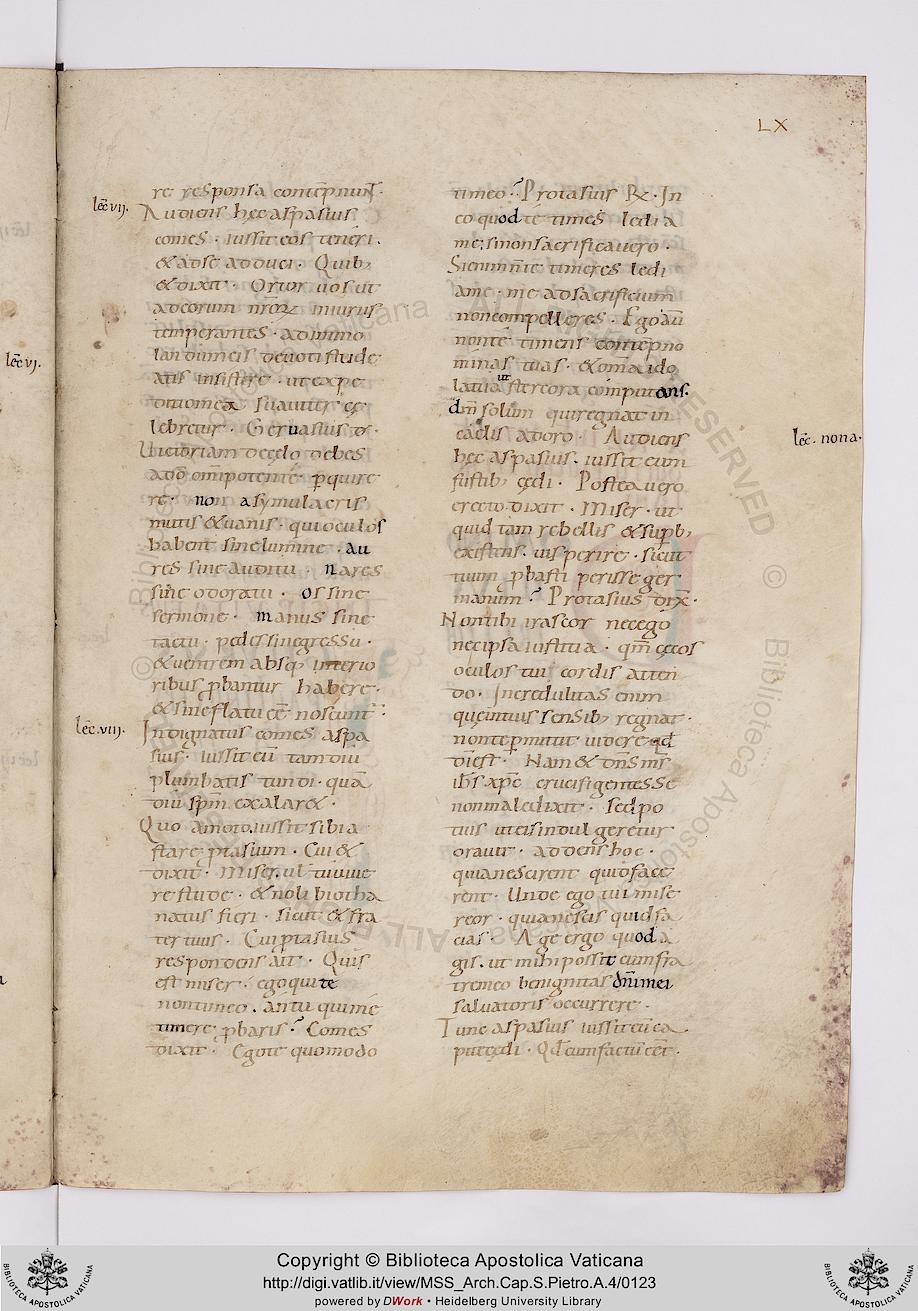 LX
re responsa contēpnunt.
lec̄ vij.
Audiens hec aspasius
comes. iussit eos teneri.
& ad se adduci. Quib;
& dixit. Ortor uos ut
adeorum nr̄oꝝ iniurias
temperantes. ad immo
landum eis deuoti stude
atis insistere. ut expe
ditio mea suauiter ce
lebretur. Geruasius dr̄.
lec̄ vj.
Uictoriam de celo debes
a do om̄ipotenté pquire
re. non a symulacris
mutis & uanis. qui oculos
habent sine lumine. au
res sine auditu. nares
sine odoratu. os sine
sermone. manus sine
tactu. pedes sine gressu.
& uentrem absq; interio
ribus pbantur habere.
& sine flatu cē noscunt.
lec̄. viij.
Indignatus comes aspa
sius. iussit eū tam diu
plumbatis tundi. quā
diu sp̄m exalar&.
Quo amoto. iussit sibi a
stare ptasium. Cui &
dixit. Miser. ul tu uiue
re stude. & noli biotha
natus fieri. sicut & fra
ter tuus. Cui ptasius
respondens ait. Quis
est miser. ego qui te
non timeo. an tu qui me
timere pbaris? Comes
dixit. Ego te quomodo
timeo? Protasius ℞. In
eo quod te times ledi a
me; si non sacrificauero.
Si enim n̄ me timeres ledi
a me. me ad sacrificium
non compelleres. Ego aū
non te timens contepno
minas tuas. & om̄ia ido
la tua ut stercora computans.
dm̄ solum qui regnat in
caelis adoro. Audiens
lec̄. nona.
hec aspasius. iussit eum
fustib; cędi. Postea uero
erecto dixit. Miser. ut
quid tam rebellis & supb;
existens. uis perire. sicut
tuum pbasti perisse ger
manum? Protasius dix̄.
Non tibi irascor nec ego
nec ipsa iustitia. qm̄ cecos
oculos tui cordis atten
do. Incredulitas enim
que in tuis sensib; regnat.
non te pmittit uidere qd
di est. Nam & dn̄s m̄s
ih̄s xp̄c crucifigentes se
non maledixit. sed po
tius ut eis indulgeretur
orauit. addens hoc.
quia nescirent quid face
rent. Unde ego tui mise
reor. quia nescis quid fa
cias. Age ergo quod a
gis. ut mihi possit cum fra
tre meo benignitas dn̄i mei
saluatoris occurrere.
Tunc aspasius iussit eū ca
pite cędi. Qd̄ cum factū cēt.
Copyright © Biblioteca Apostolica Vaticana
http://digi.vatlib.it/view/MSS_Arch.Cap.S.Pietro.A.4/0123
powered by DWork • Heidelberg University Library